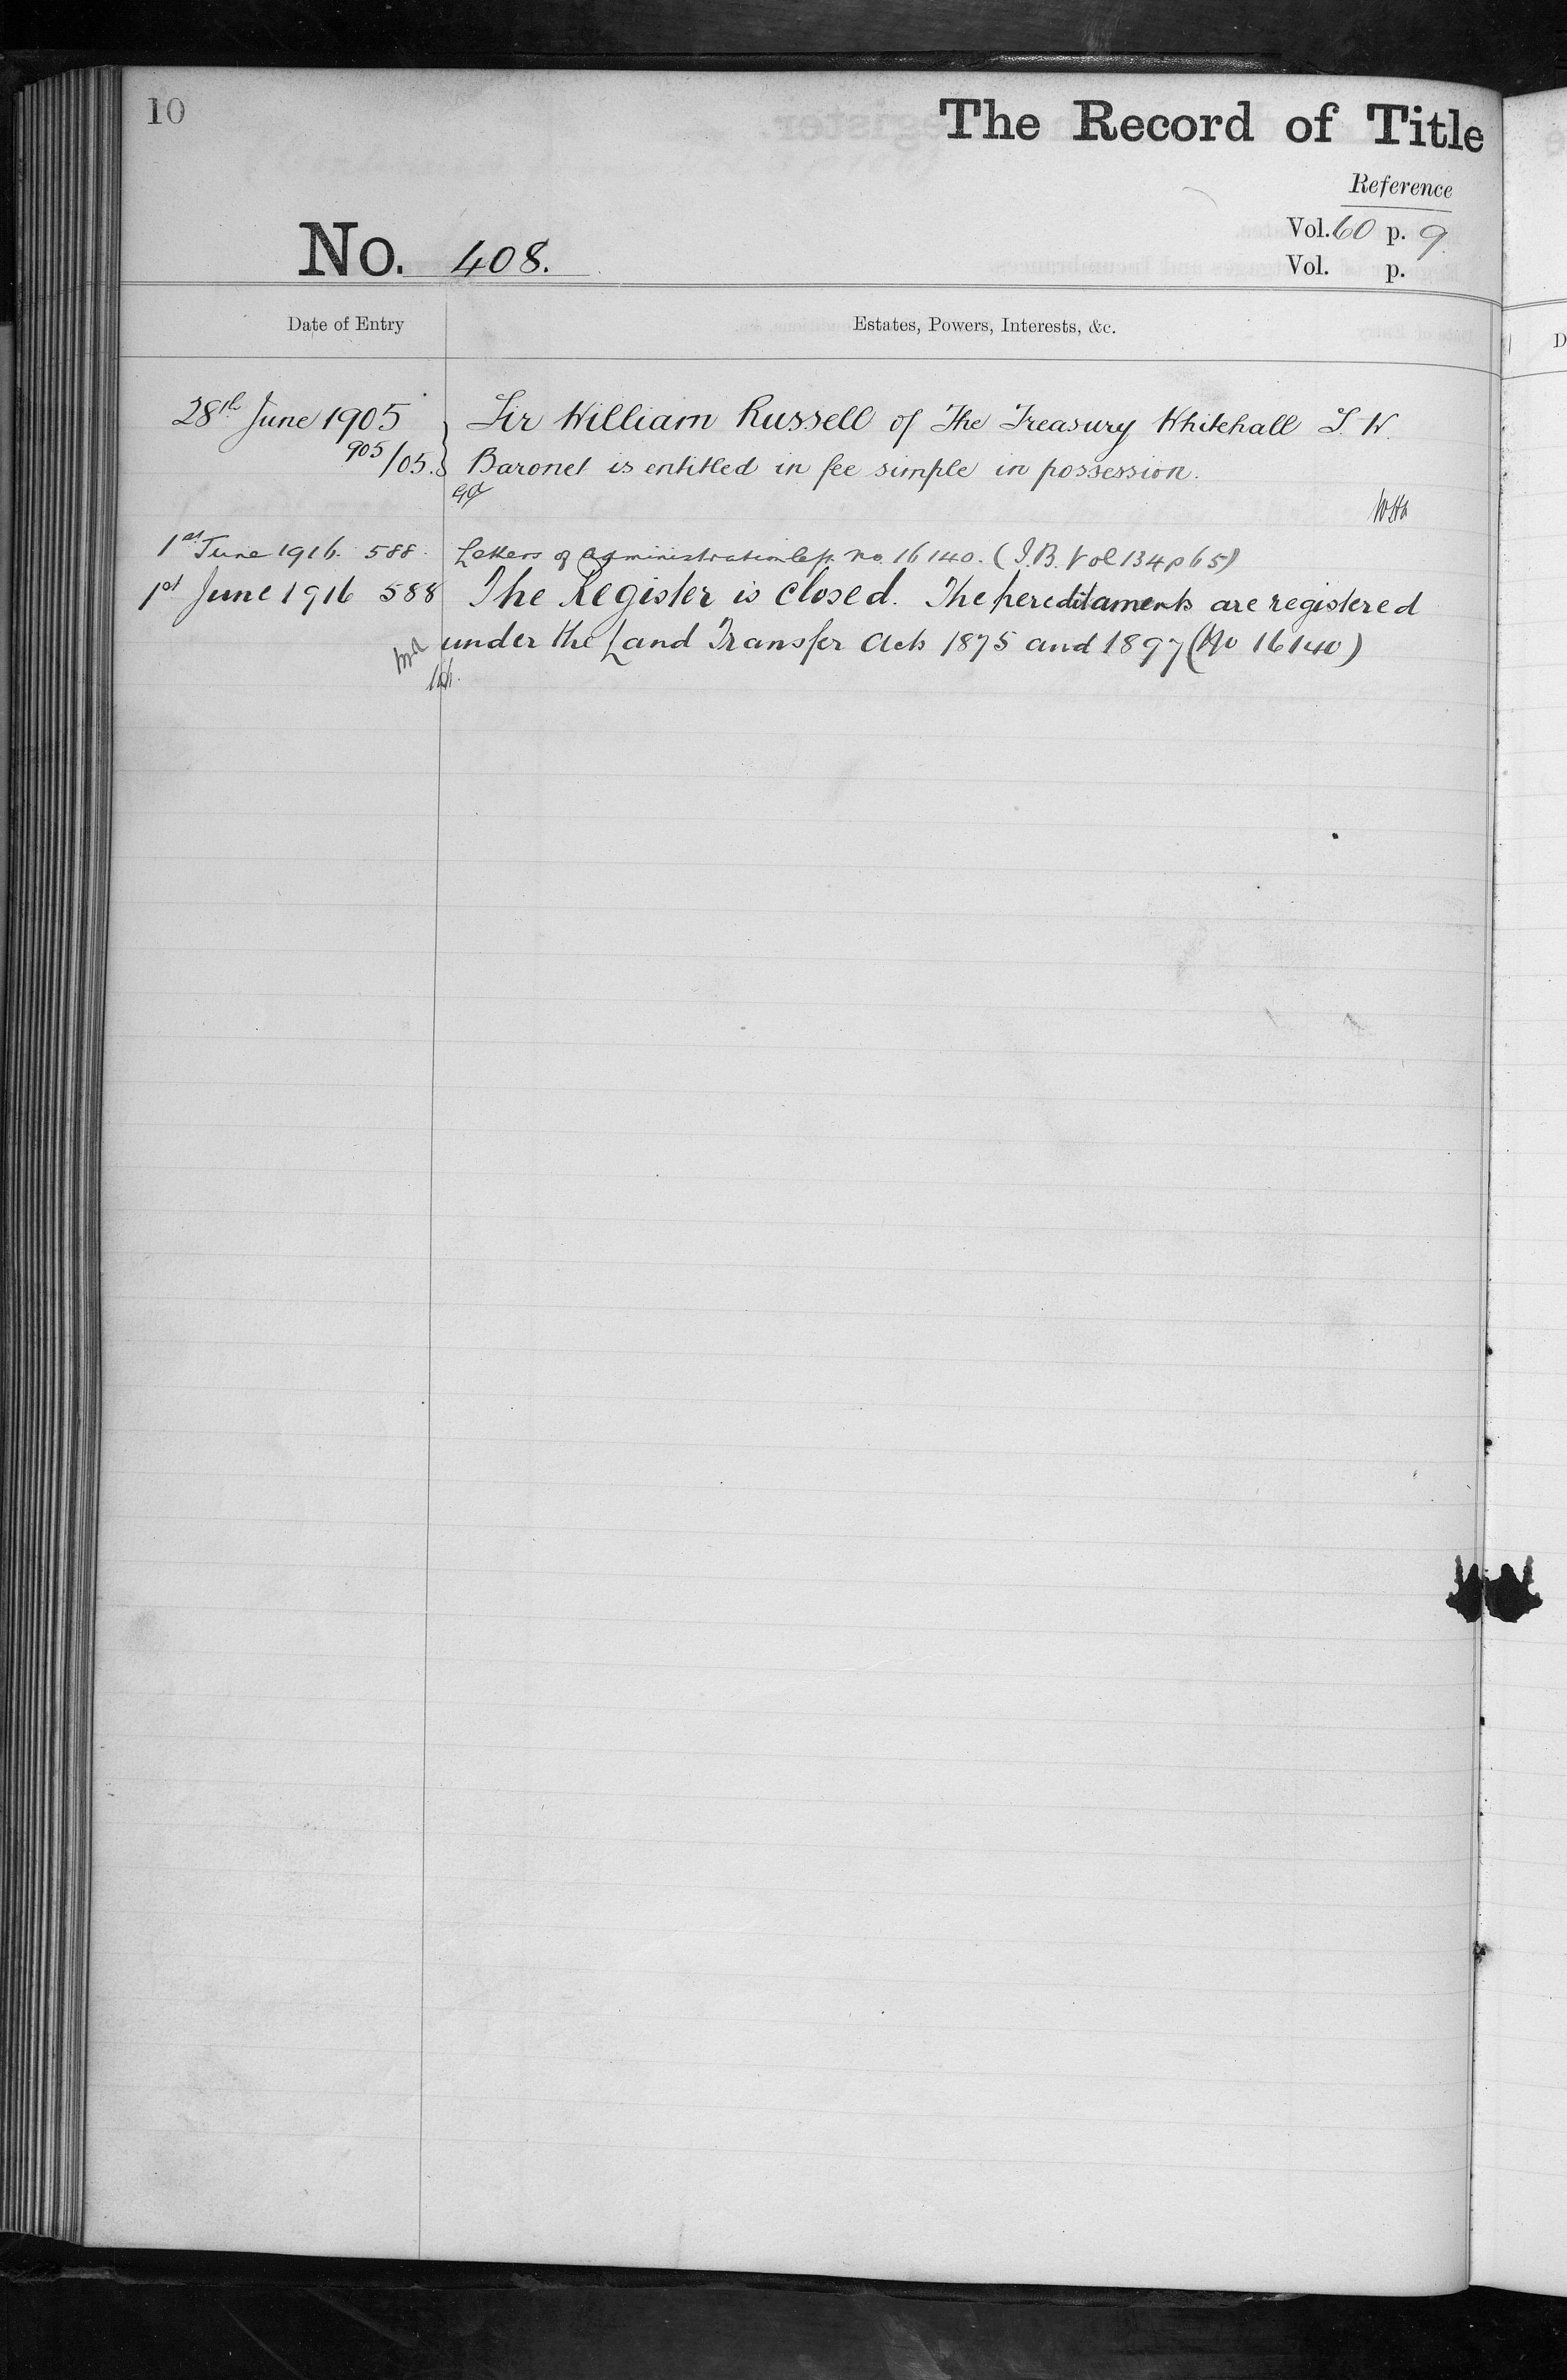 10
The Record of Title
Reference
Vol. 60 p. 9.
No. 408.
Vol. p.
Date of Entry
Estates, Powers, Interests, &c.
28th June 1905
Sir William Russell of The Treasury Whitehall S. W.
905/05.
Baronet is entitled in fee simple in possession.
1st June 1916. 588.
Letters of Administration no. 16140. (I.B. Vol 134 p 65)
1st June 1916 588
The Register is closed. The hereditaments are registered
under the Land Transfer Acts 1875 and 1897 (No 16140)